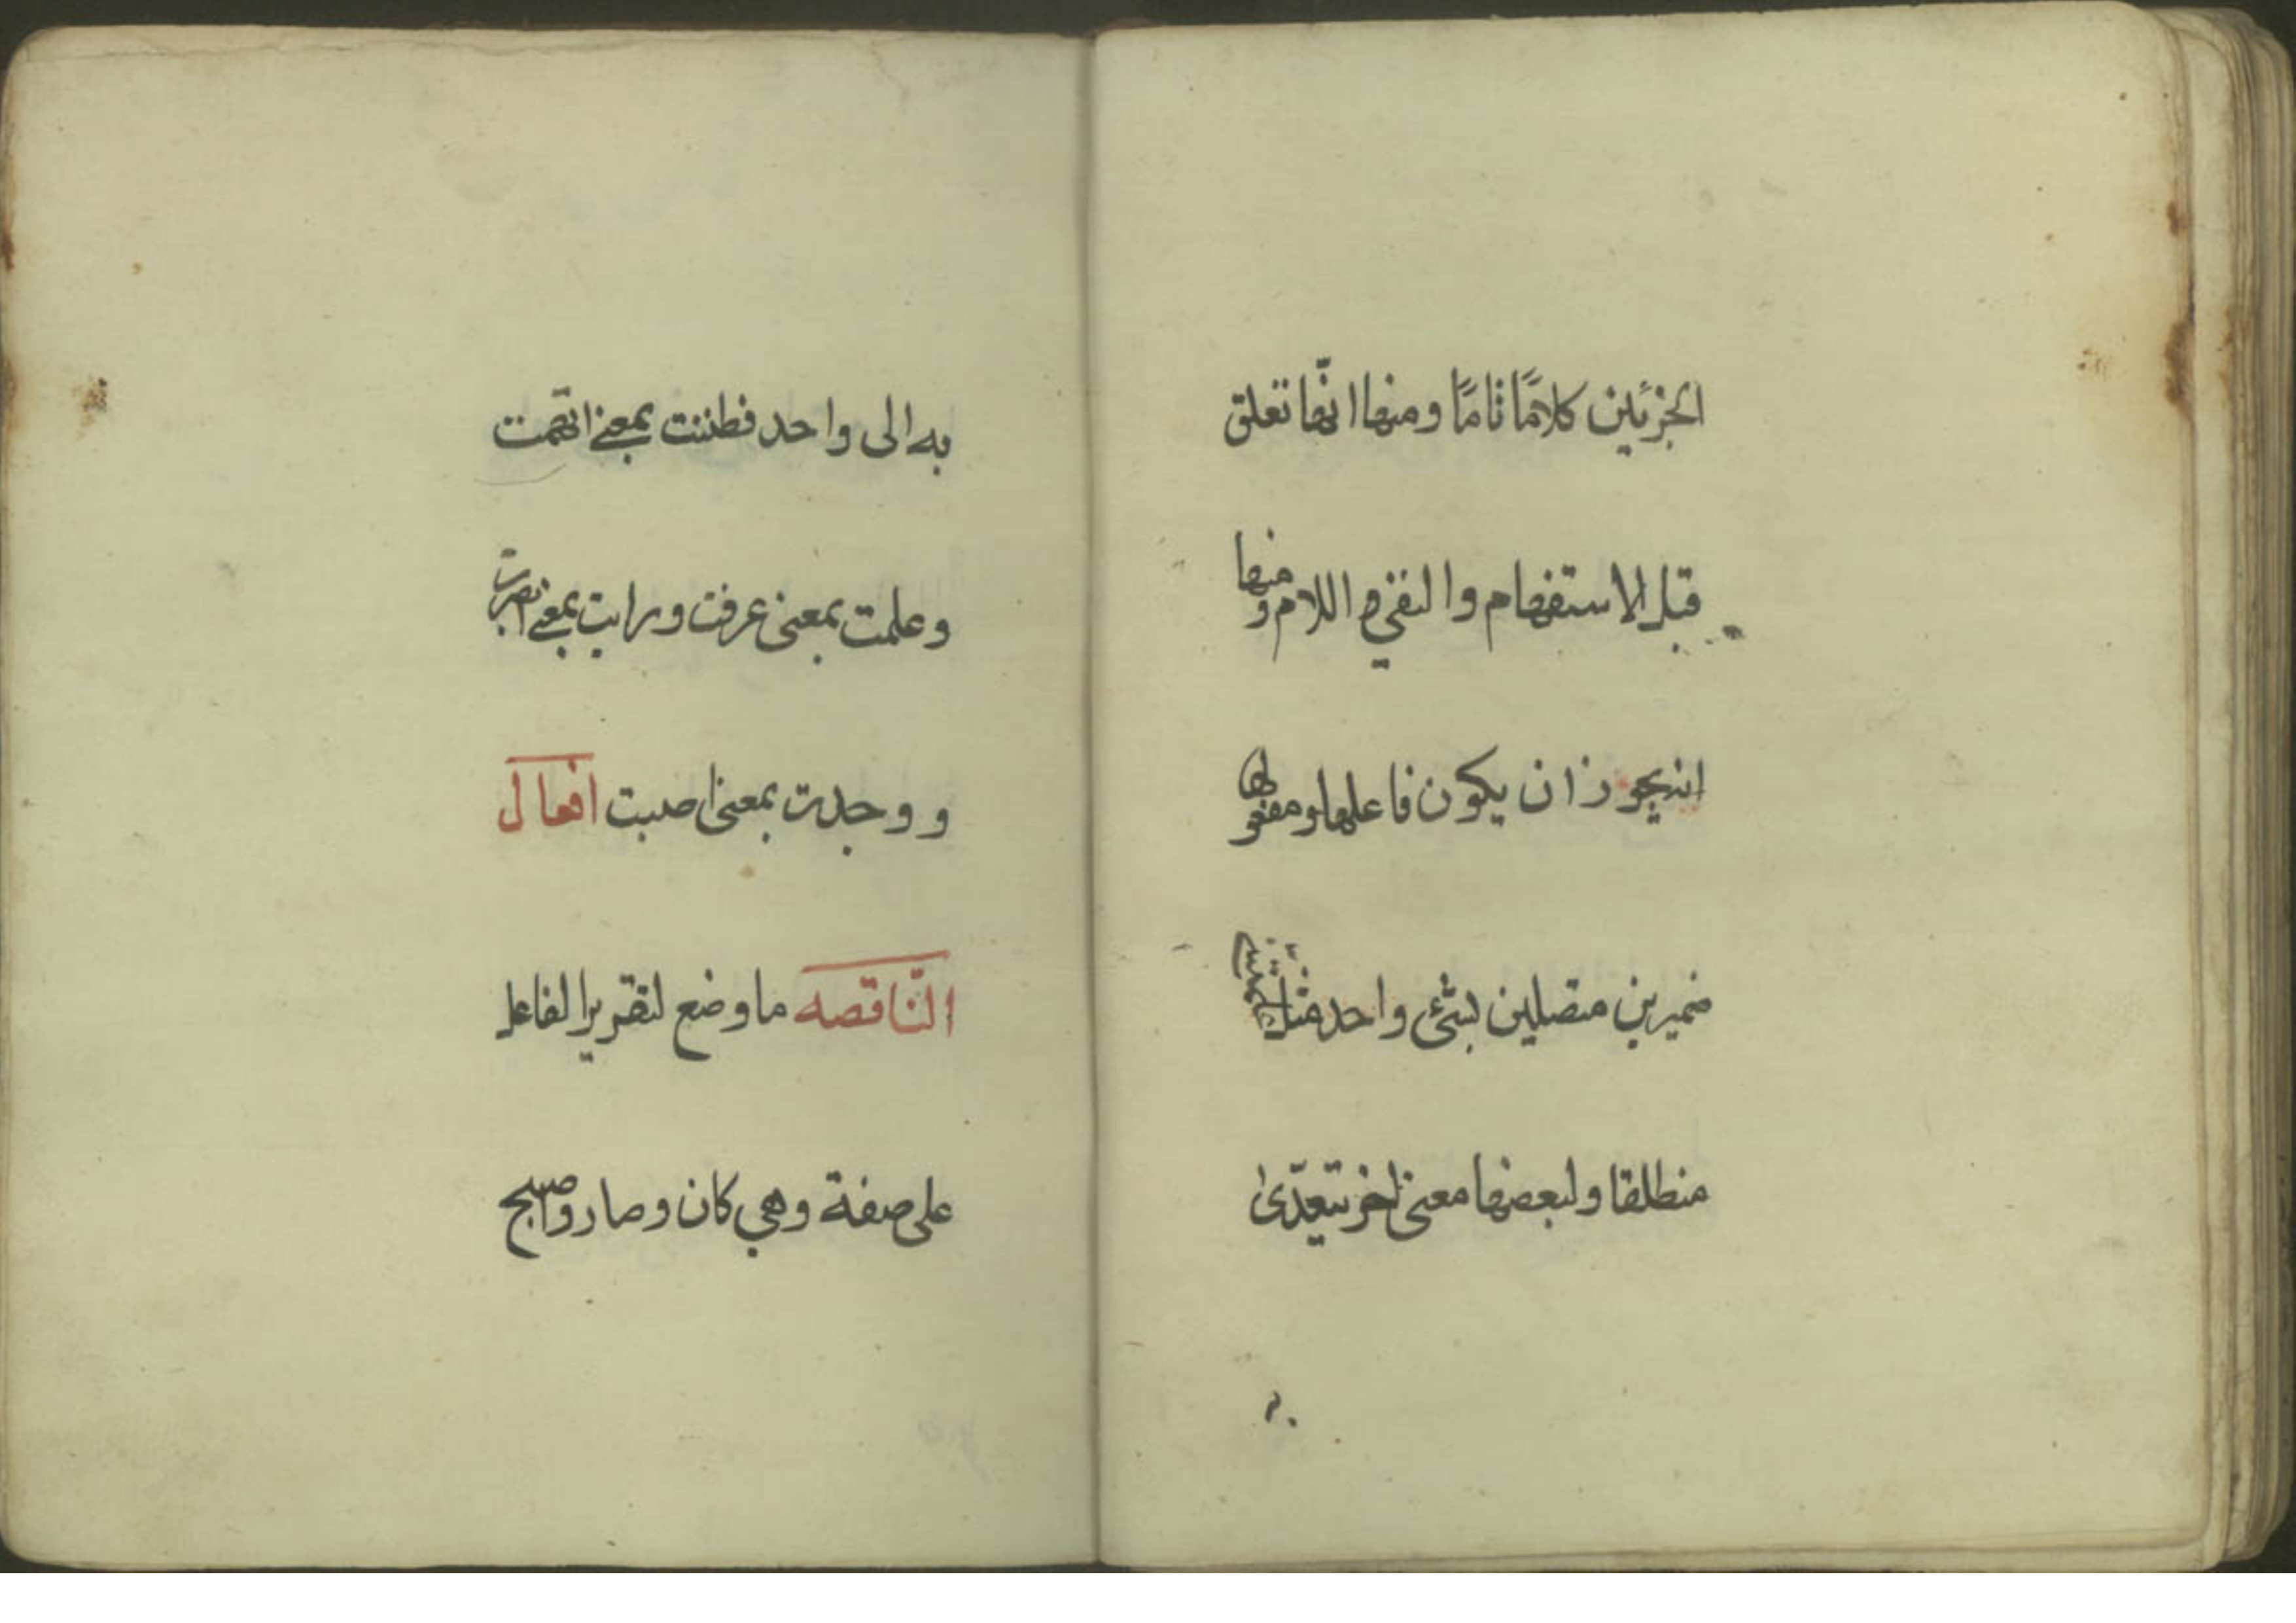 الجزئين كلامًا تامًا ومنها انّها تعلق
قبل الاستفهام والنفي واللام ومنها
انه يجوز ان يكون فاعلها ومفعولها
ضميرين متصلين لشئ واحد مثل علمتني
منطلقا ولبعضها معنى اخر يتعدّى
به الى واحد فظننت بمعنى اتهمت
وعلمت بمعنى عرفت ورايت بمعنى ابصرت
ووجدت بمعنى اصبت افعال
النّاقصه ما وضع لتقرير الفاعل
على صفة وهي كان وصار واصبح